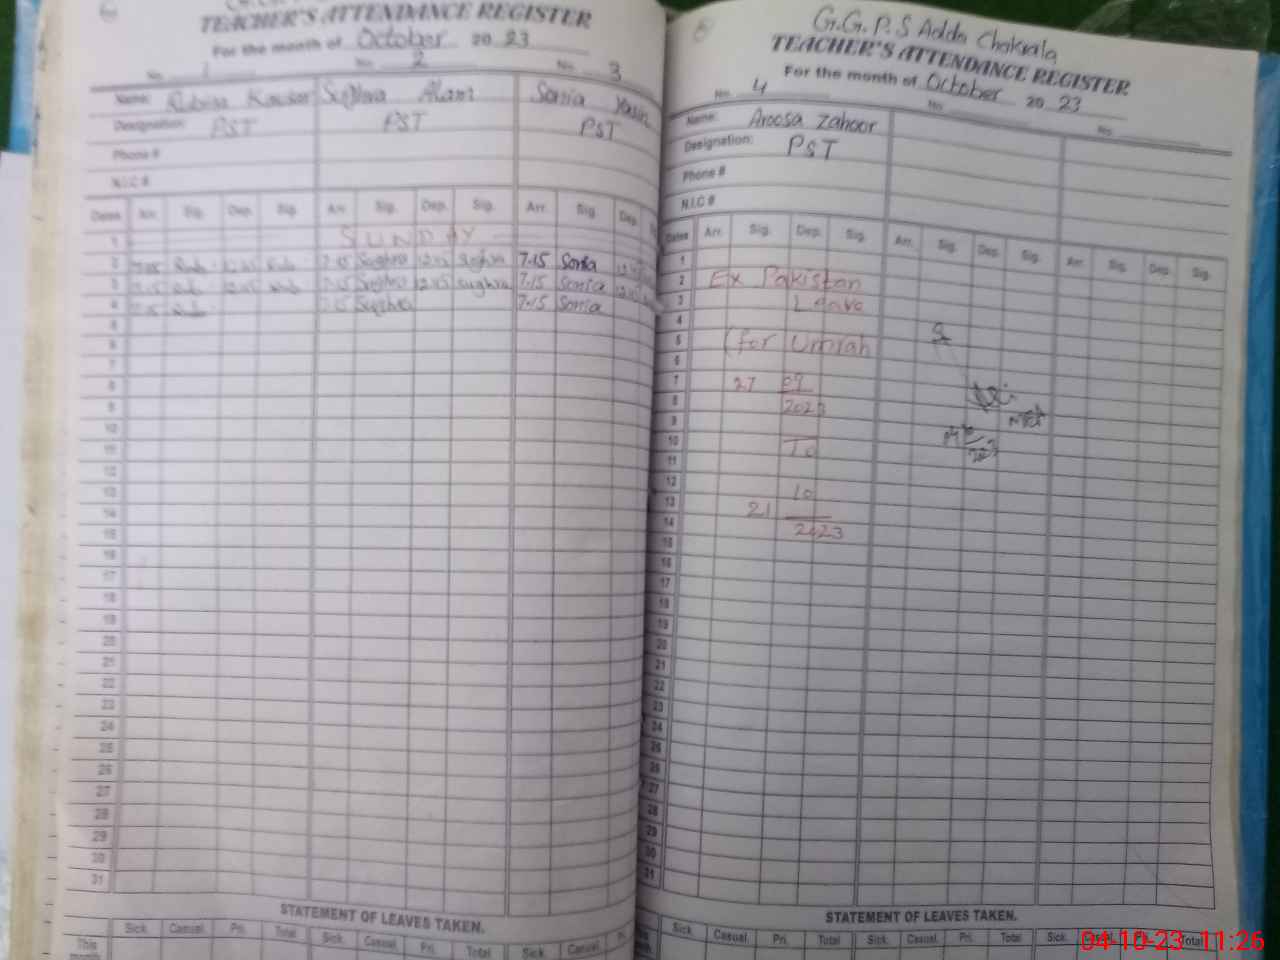 TEACHER'S ATTENDANCE REGISTER
For the month of October 20 23
No. 1 No. 2 No. 3
Name: Rubina Kausar Sughra Alam Sonia Yasin
Designation: PST PST PST
Phone #
N.I.C #
Dates Arr. Sig. Dep. Sig. Arr. Sig. Dep. Sig. Arr. Sig. Dep.
1 SUNDAY
2 7:15 12:45 7:15 Sughra 12:45 Sughra 7:15 Sonia
3 7:15 12:45 7:15 Sughra 12:45 Sughra 7:15 Sonia
4 7:15 7:15 Sughra 7:15 Sonia
5
6
7
8
9
10
11
12
13
14
15
16
17
18
19
20
21
22
23
24
25
26
27
28
29
30
31
STATEMENT OF LEAVES TAKEN.
Sick. Casual. Pri. Total Sick. Casual. Pri. Total Sick. Casual. Pri.
This
G.G.P.S Adda Chakrala
TEACHER'S ATTENDANCE REGISTER
For the month of October 20 23
No. 4 No. No.
Name: Aroosa Zahoor
Designation: PST
Phone #
N.I.C #
Dates Arr. Sig. Dep. Sig. Arr. Sig. Dep. Sig. Arr. Sig. Dep. Sig.
1
2 Ex Pakistan
3 Leave
4
5 (for Umrah
6
7 27 09
8 2023
9
10 To
11
12
13 21 10
14 2023
15
16
17
18
19
20
21
22
23
24
25
26
27
28
29
30
31
STATEMENT OF LEAVES TAKEN.
Sick. Casual. Pri. Total Sick. Casual. Pri. Total Sick. Casual. Pri. Total
04-10-23 11:26